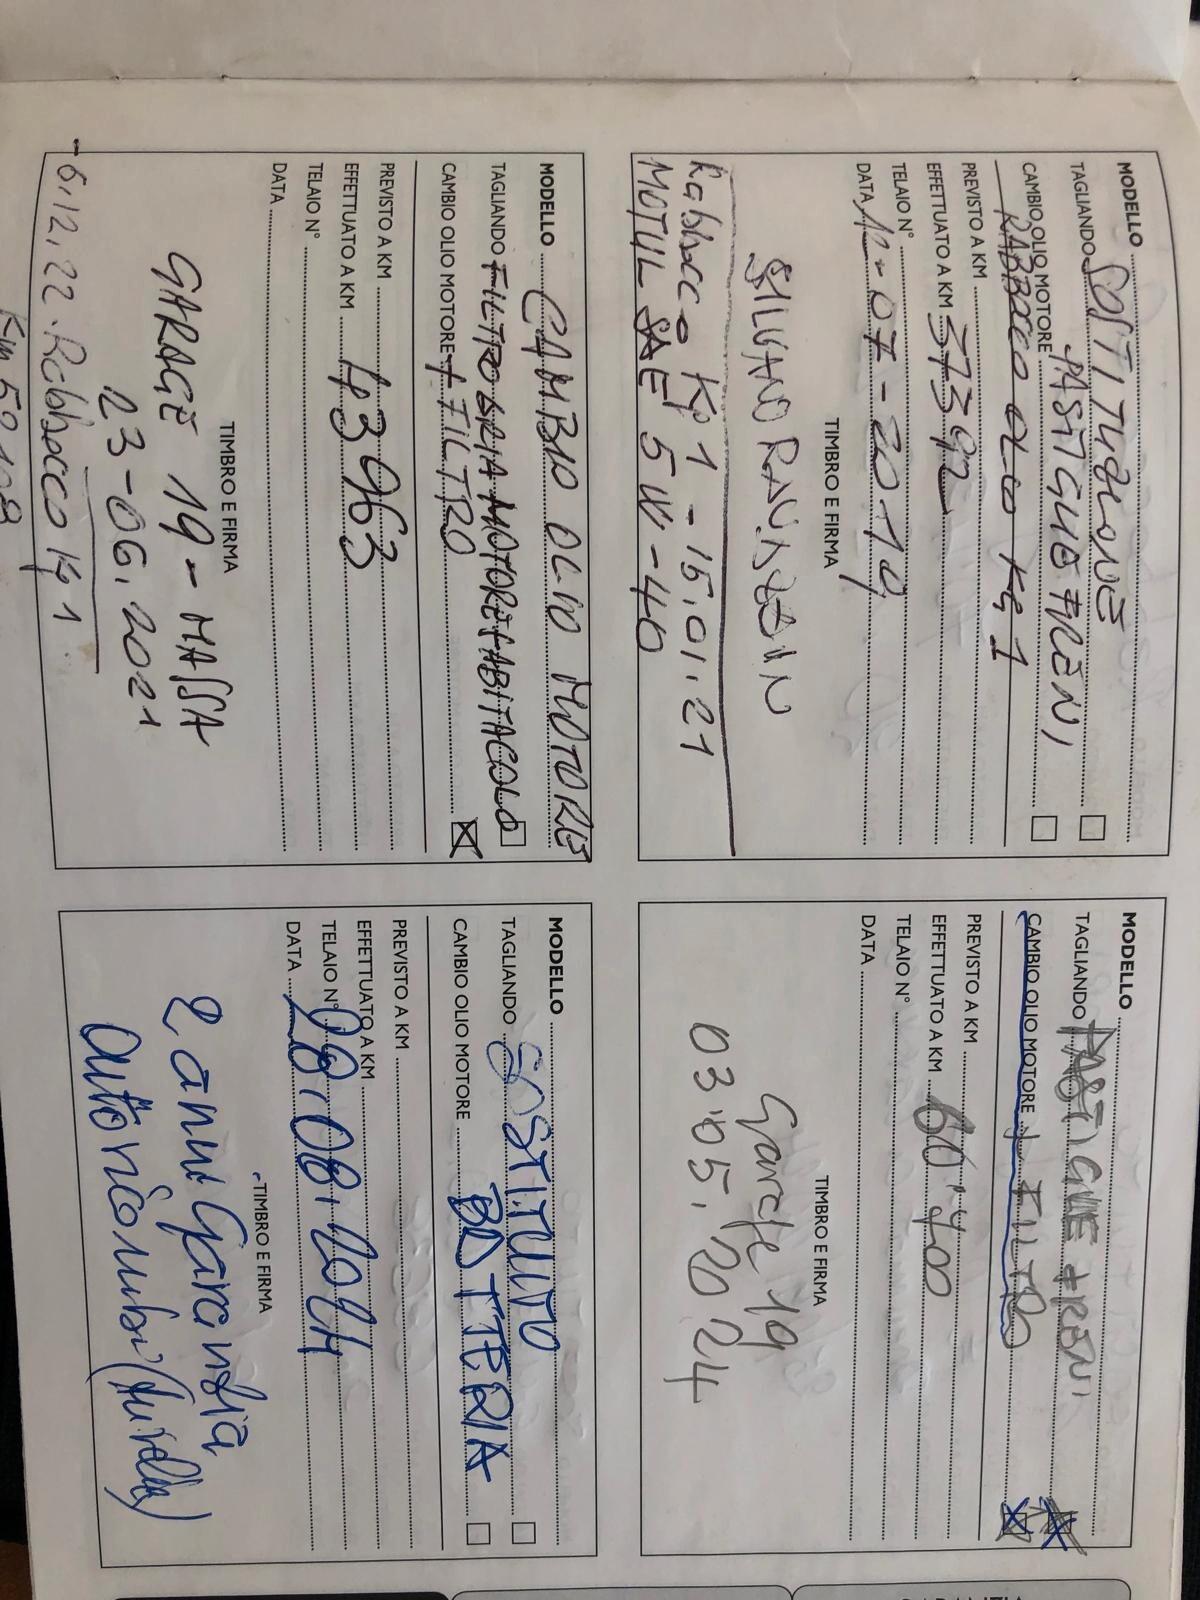 MODELLO SOSTITUZIONE
TAGLIANDO PASTIGLIE FRENI
CAMBIO OLIO MOTORE RABBOCCO OLIO KG 1
PREVISTO A KM
EFFETTUATO A KM 37392
TELAIO N°
DATA 12-07-2019
TIMBRO E FIRMA
SILVANO
Rabbocco Kg 1 - 15.01.21
MOTUL SAE 5W-40
MODELLO
TAGLIANDO PASTIGLIE FRENI
CAMBIO OLIO MOTORE + FILTRO
PREVISTO A KM
EFFETTUATO A KM 60'400
TELAIO N°
DATA
TIMBRO E FIRMA
Garage 19
03.05.2024
MODELLO CAMBIO OLIO MOTORE
TAGLIANDO FILTRO ARIA MOTORE+ABITACOLO
CAMBIO OLIO MOTORE + FILTRO
PREVISTO A KM
EFFETTUATO A KM 43963
TELAIO N°
DATA
TIMBRO E FIRMA
GARAGE 19 - MASSA
23-06.2021
- 6.12.22. Rabbocco Kg 1
MODELLO
TAGLIANDO SOSTITUITO
CAMBIO OLIO MOTORE BATTERIA
PREVISTO A KM
EFFETTUATO A KM
TELAIO N°
DATA 28.08.2024
TIMBRO E FIRMA
2 anni Garanzia